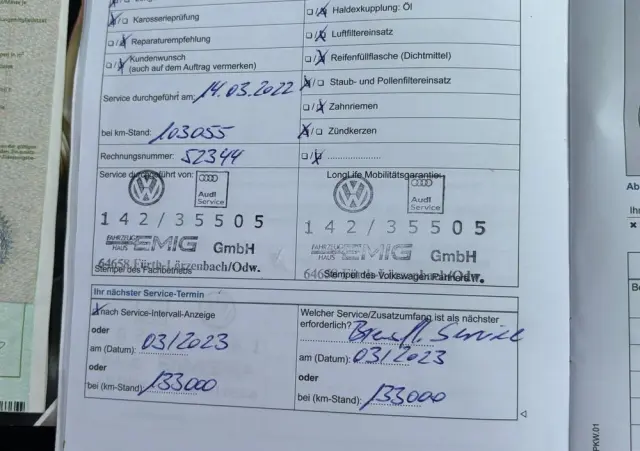 Karosserieprüfung
Reparaturempfehlung
Kundenwunsch
(auch auf dem Auftrag vermerken)
Service durchgeführt am: 14.03.2022
bei km-Stand: 103055
Rechnungsnummer: 52344
Haldexkupplung: Öl
Luftfiltereinsatz
Reifenfüllflasche (Dichtmittel)
Staub- und Pollenfiltereinsatz
Zahnriemen
Zündkerzen
Service durchgeführt von:
Audi
Service
142/35505
FAHRZEUG
HAUS EMIG GmbH
64658 Fürth-Lörzenbach/Odw.
Stempel des Fachbetriebs
LongLife Mobilitätsgarantie:
Audi
Service
142/35505
FAHRZEUG
HAUS EMIG GmbH
64658 Fürth-Lörzenbach/Odw.
Stempel des Volkswagen Partners
Ihr nächster Service-Termin
nach Service-Intervall-Anzeige
oder
am (Datum): 03/2023
oder
bei (km-Stand): 133000
Welcher Service/Zusatzumfang ist als nächster
erforderlich? Service
am (Datum): 03/2023
oder
bei (km-Stand): 133000
PKW.01